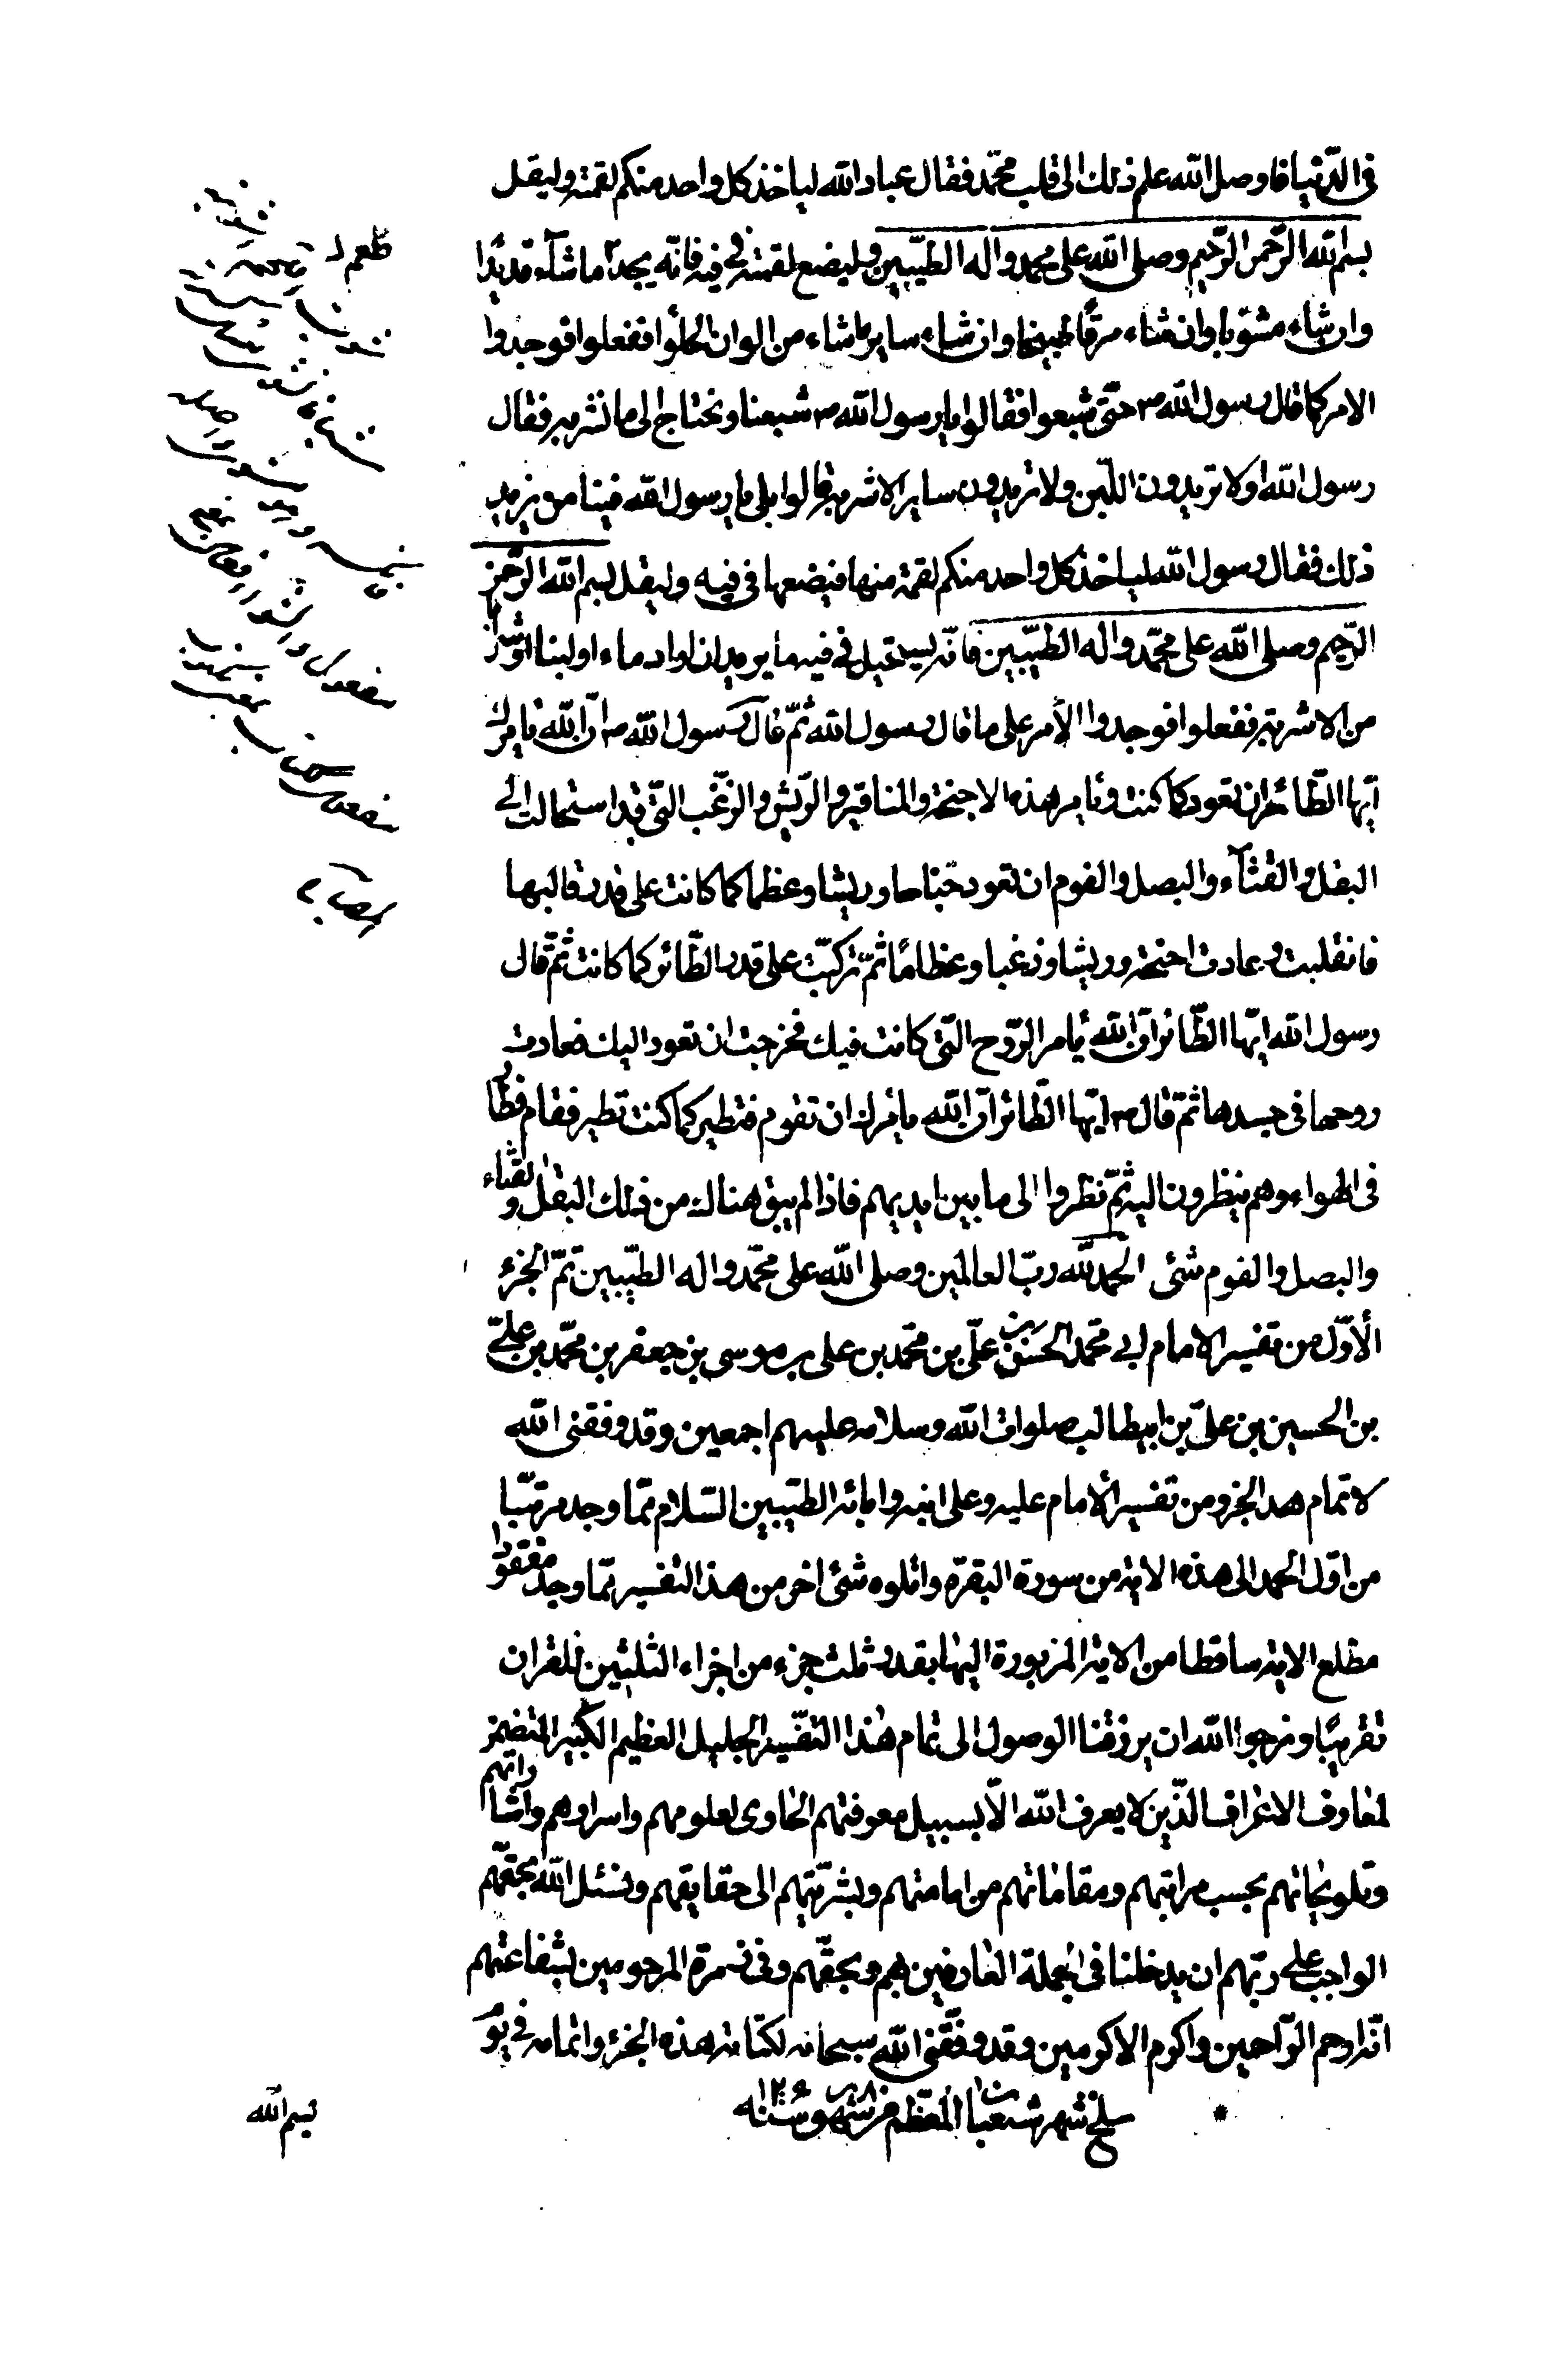 فى الدّنيا فاوصل الله علم ذلك الى قلب محمّد فقال عباد الله لياخذ كل واحد منكم لقمته وليقل
بسم الله الرّحمن الرّحيم وصلى الله على محمد واله الطيّبين وليضع لقمته فى فيه فانّه يجد ما شآء قديدًا
وان شاء مشويا وان شاء مرقًا طبيخا وان شاء ساير ما شاء من الوان الحلوا ففعلوا فوجدوا
الامر كما قال رسول الله ص حتّى شبعوا فقالوا يا رسول الله ص شبعنا ونحتاج الى ما نشربه فقال
رسول الله اولا تريدون اللّبن ولا تريدون ساير الاشربة قالوا بلى يا رسول الله فينا من يريد
ذلك فقال رسول الله لياخذ كل واحد منكم لقمة منها فيضعها فى فيه وليقل بسم الله الرّحمن
الرّحيم وصلى الله على محمّد واله الطيّبين فانّه يستحيل فى فيه ما يريد ان اراد ماء او لبنا او شرابا
من الاشربة ففعلوا فوجدوا الأمر على ما قال رسول الله ثمّ قال رسول الله ص انّ الله يامرك
ايّها الطّائر ان تعود كما كنت ويامر هذه الاجنحة والمناقير والرّيش والزّغب الّتى قد استحالت الى
البقل والقثآء والبصل والفوم ان تعود جناحا وريشا وعظما كما كانت على قدر قالبها
فانقلبت وعادت اجنحة وريشا وزغبا وعظامًا ثمّ تركبّت على قدر الطّائر كما كانت ثمّ قال
رسول الله ايّها الطّائر انّ الله يأمر الرّوح الّتى كانت فيك فخرجت ان تعود اليك فعادت
روحها فى جسدها ثمّ قال ص ايّها الطّائر انّ الله يامرك ان تقوم فتطير كما كنت تطير فقام فطار
فى الهواء وهم ينظرون اليه ثمّ نظروا الى ما بين ايديهم فاذا لم يبق هنالك من ذلك البقل والقثاء
والبصل والفوم شئى الحمد لله ربّ العالمين وصلى الله على محمّد واله الطيّبين تمّ الجزء
الأوّل من تفسير الامام ابى محمّد الحسن بن علىّ بن محمّد بن على بن موسى بن جعفر بن محمّد بن علىّ
بن الحسين بن علىّ بن ابيطالب صلوات الله وسلامه عليهم اجمعين وقد وفقنى الله
لاتمام هذ الجزو من تفسير الأمام عليه وعلى ابنه وابائه الطيّبين السّلام ممّا وجد مرتبّا
من اوّل الحمد الى هذه الاية من سورة البقرة واتلوه شئ اخر من هذ التفسير ممّا وجد مفقودا
مطلع الاية ساقطا من الاية المزبورة اليها بقدر ثلث جزء من اجزاء الثلثين للقران
تقريبًا ونرجوا الله ان يرزقنا الوصول الى تمام هذا التفسير الجليل العظيم الكبير المتضمّن
لمعارف الاعراف الّذين لا يعرف الله الّا بسبيل معرفتهم الحاوى لعلومهم واسرارهم واشاراتهم
وتلويحاتهم بحسب مراتبهم ومقاماتهم من امامتهم وبشريّتهم الى حقايقهم ونسئل الله بحقّهم
الواجب على ربّهم ان يدخلنا فى الجملة العارفين بهم وبحقّهم وفى زمرة المرحومين بشفاعتهم
انّه ارحم الرّاحمين واكرم الاكرمين وقد وفّقنى الله سبحانه لكتابة هذه الجزء واتمامه فى يوم
سلخ شهر شعبان المعظم من شهور سنه
بسم الله